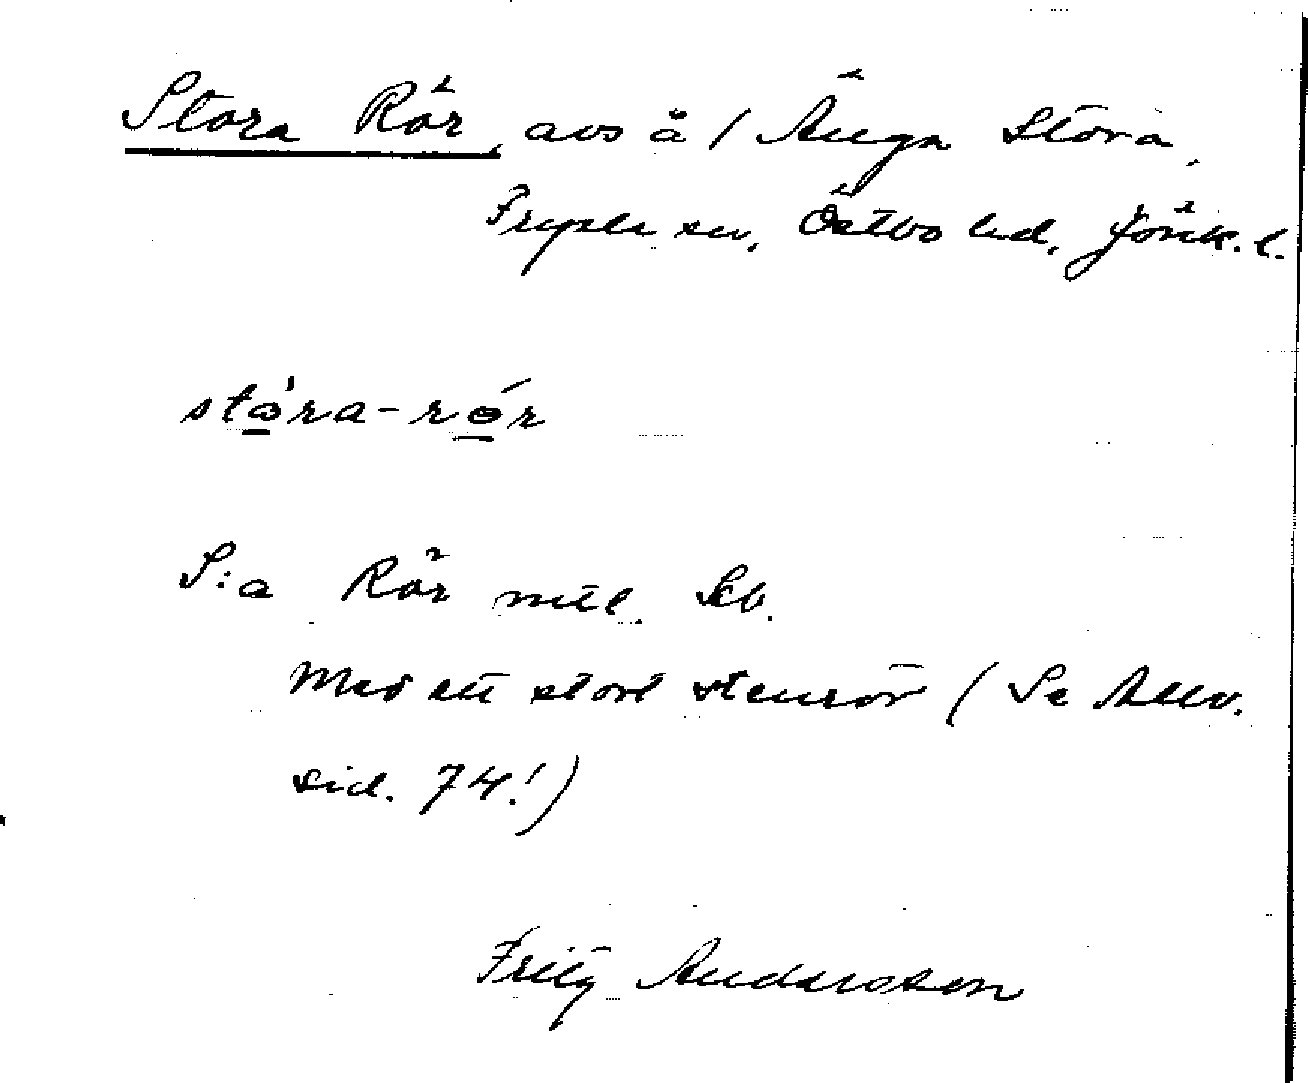 Stora Rör, avs å / Änga Stora,
Fryele sn, Östbo hd, Jönk. l.
stóra-rór
S:a Rör mtl. Jb.
Med ett stort stenrör (Se Allv.
sid. 74!)
Fritz Andersson